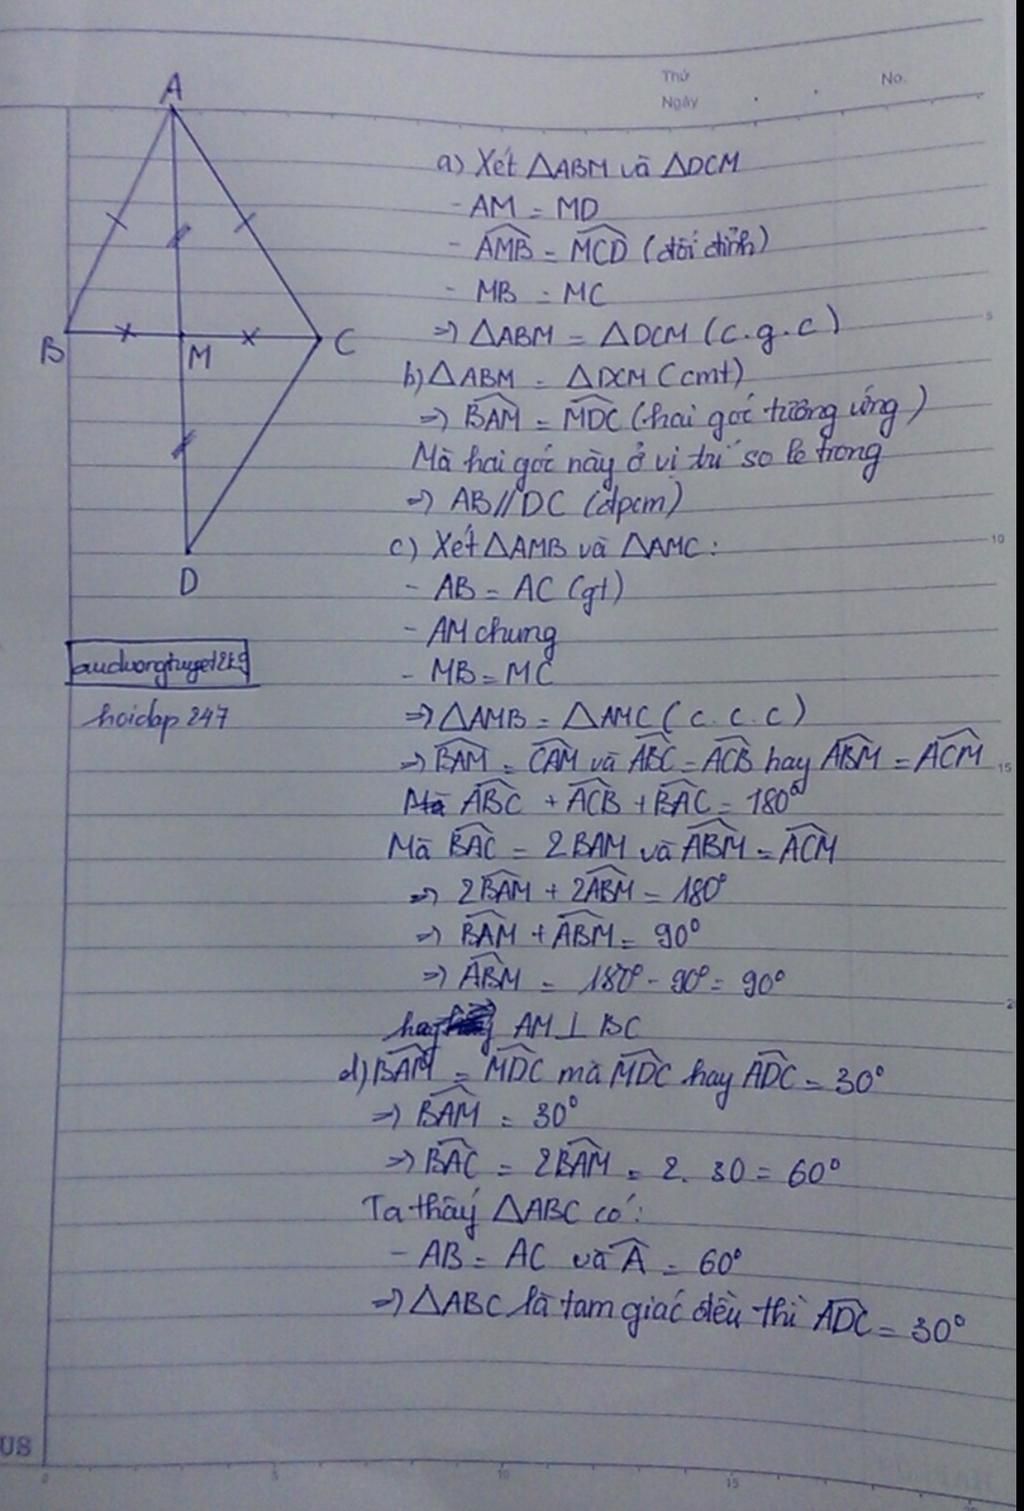 Thứ
Ngày
No.
A
B
M
C
D
auduongtuyet1219
hoidap 247
a) Xét △ABM và △DCM
- AM = MD
- \widehat{AMB} = \widehat{MCD} (đối đỉnh)
- MB = MC
=> △ABM = △DCM (c.g.c)
b) △ABM = △DCM (cmt)
=> \widehat{BAM} = \widehat{MDC} (hai góc tương ứng)
Mà hai góc này ở vị trí so le trong
=> AB // DC (đpcm)
c) Xét △AMB và △AMC :
- AB = AC (gt)
- AM chung
- MB = MC
=> △AMB = △AMC ( c. c. c )
=> \widehat{BAM} = \widehat{CAM} và \widehat{ABC} = \widehat{ACB} hay \widehat{ABM} = \widehat{ACM}
Mà \widehat{ABC} + \widehat{ACB} + \widehat{BAC} = 180°
Mà \widehat{BAC} = 2BAM và \widehat{ABM} = \widehat{ACM}
=> 2\widehat{BAM} + 2\widehat{ABM} = 180°
=> \widehat{BAM} + \widehat{ABM} = 90°
=> \widehat{ABM} = 180° - 90° = 90°
hay AM ⊥ BC
d) \widehat{BAM} = \widehat{MDC} mà \widehat{MDC} hay \widehat{ADC} = 30°
=> \widehat{BAM} = 30°
=> \widehat{BAC} = 2\widehat{BAM} = 2. 30 = 60°
Ta thấy △ABC có :
- AB = AC và \widehat{A} = 60°
=> △ABC là tam giác đều thì \widehat{ADC} = 30°
5
10
15
2
US
0
5
10
15